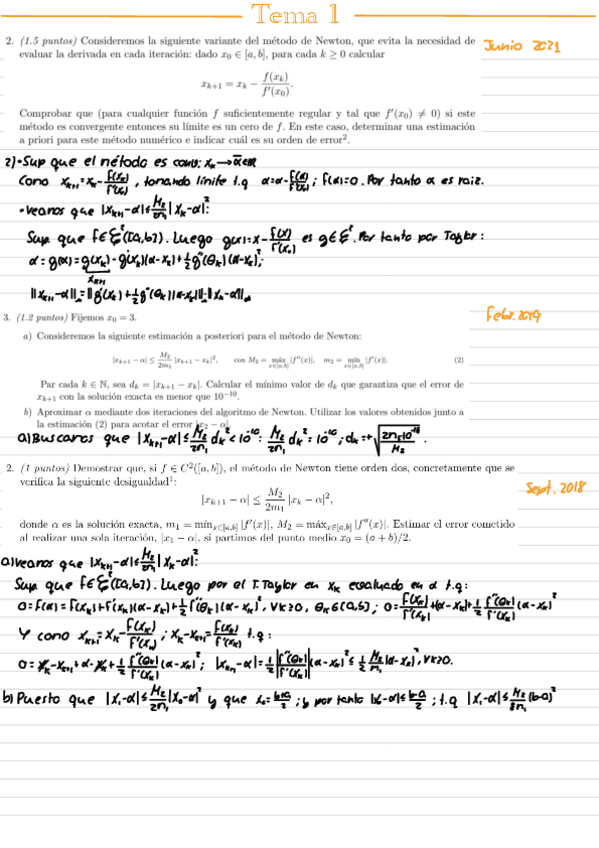 Tema 1
2. (1.5 puntos) Consideremos la siguiente variante del método de Newton, que evita la necesidad de
evaluar la derivada en cada iteración: dado x₀ ∈ [a, b], para cada k ≥ 0 calcular
Junio 2021
xₖ₊₁ = xₖ − f(xₖ)/f′(x₀).
Comprobar que (para cualquier función f suficientemente regular y tal que f′(x₀) ≠ 0) si este
método es convergente entonces su límite es un cero de f. En este caso, determinar una estimación
a priori para este método numérico e indicar cuál es su orden de error².
2)•Sup que el método es conv: xₖ→α∈ℝ
Como xₖ₊₁=xₖ-f(xₖ)/f'(x₀), tomando límite t.q α=α-f(α)/f'(x₀); f(α)=0. Por tanto α es raíz.
•Veamos que |xₖ₊₁-α|≤M₂/2m₁|xₖ-α|²:
Sup que f∈C²([a,b]). Luego g(x)=x-f(x)/f'(x₀) es g∈C². Por tanto por Taylor:
α=g(α)=g(xₖ)-g'(xₖ)(α-xₖ)+½g''(θₖ)(α-xₖ)²;
xₖ₊₁
||xₖ₊₁-α||=||g'(xₖ)+½g''(θₖ)(α-xₖ)||·||xₖ-α||
3. (1.2 puntos) Fijemos x₀ = 3.
Febr. 2019
a) Consideremos la siguiente estimación a posteriori para el método de Newton:
|xₖ₊₁ − α| ≤ M₂/2m₁ |xₖ₊₁ − xₖ|², con M₂ = máx x∈[a,b] |f″(x)|, m₂ = mín x∈[a,b] |f′(x)|. (2)
Par cada k ∈ ℕ, sea dₖ = |xₖ₊₁ − xₖ|. Calcular el mínimo valor de dₖ que garantiza que el error de
xₖ₊₁ con la solución exacta es menor que 10⁻¹⁰.
b) Aproximar α mediante dos iteraciones del algoritmo de Newton. Utilizar los valores obtenidos junto a
la estimación (2) para acotar el error |x₂ − α|.
a)Buscamos que |xₖ₊₁-α|≤M₂/2m₁ dₖ²<10⁻¹⁰: M₂/2m₁ dₖ²=10⁻¹⁰; dₖ=+√(2m₁10⁻¹⁰/M₂).
2. (1 puntos) Demostrar que, si f ∈ C²([a, b]), el método de Newton tiene orden dos, concretamente que se
verifica la siguiente desigualdad¹:
Sept. 2018
|xₖ₊₁ − α| ≤ M₂/2m₁ |xₖ − α|²,
donde α es la solución exacta, m₁ = mínₓ∈[a,b] |f′(x)|, M₂ = máxₓ∈[a,b] |f″(x)|. Estimar el error cometido
al realizar una sola iteración, |x₁ − α|, si partimos del punto medio x₀ = (a + b)/2.
a)Veamos que |xₖ₊₁-α|≤M₂/2m₁|xₖ-α|²:
Sup que f∈C²([a,b]). Luego por el T. Taylor en xₖ evaluado en α t.q:
0=f(α)=f(xₖ)+f'(xₖ)(α-xₖ)+½f''(θₖ)(α-xₖ)², ∀k≥0, θₖ∈(a,b); 0=f(xₖ)/f'(xₖ)+(α-xₖ)+½ f''(θₖ)/f'(xₖ)(α-xₖ)²
Y como xₖ₊₁=xₖ-f(xₖ)/f'(xₖ); xₖ-xₖ₊₁=f(xₖ)/f'(xₖ) t.q:
0=xₖ-xₖ₊₁+α-xₖ+½ f''(θₖ)/f'(xₖ)(α-xₖ)²; |xₖ₊₁-α|=½|f''(θₖ)/f'(xₖ)|(α-xₖ)²≤½ M₂/m₁|α-xₖ|², ∀k≥0.
b)Puesto que |x₁-α|≤M₂/2m₁|x₀-α|² y que x₀=b+a/2; y por tanto |x₀-α|≤b-a/2; t.q |x₁-α|≤M₂/8m₁(b-a)²